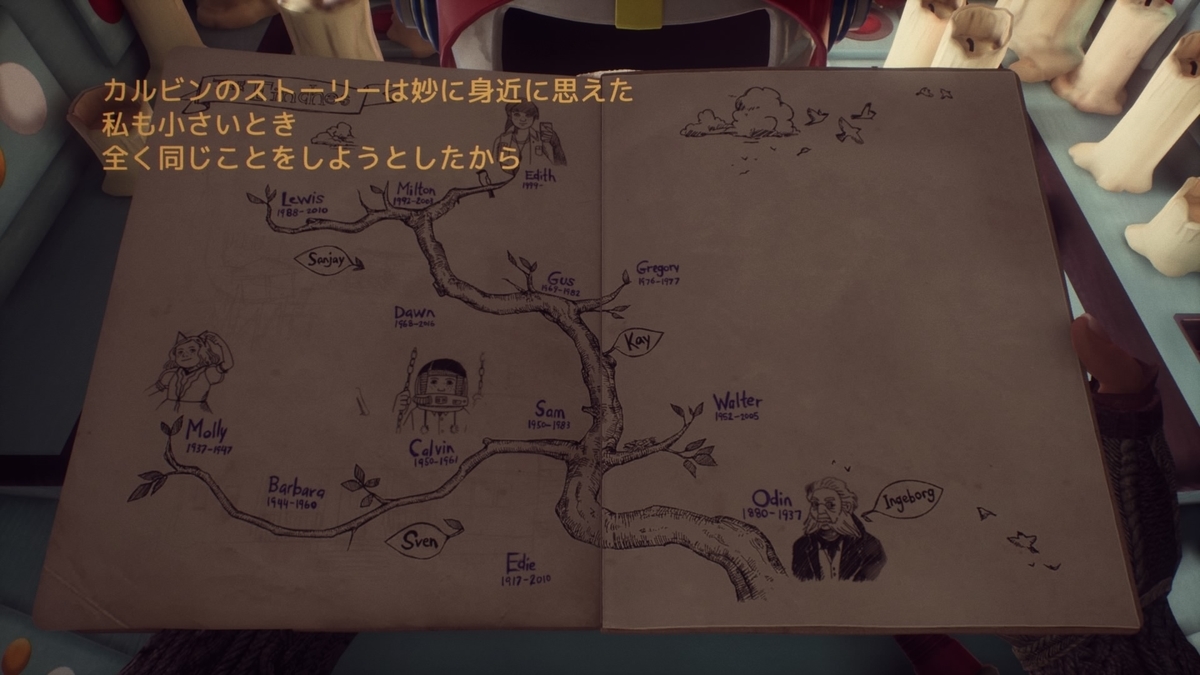 カルビンのストーリーは妙に身近に思えた
私も小さいとき
全く同じことをしようとしたから
Edith
1999-
Lewis
1988-2010
Milton
1992-2003
Sanjay
Gus
1969-1982
Gregory
1976-1977
Dawn
1968-2016
Kay
Sam
1950-1983
Walter
1952-2005
Molly
1937-1947
Calvin
1950-1961
Barbara
1944-1960
Odin
1880-1937
Ingeborg
Sven
Edie
1917-2010